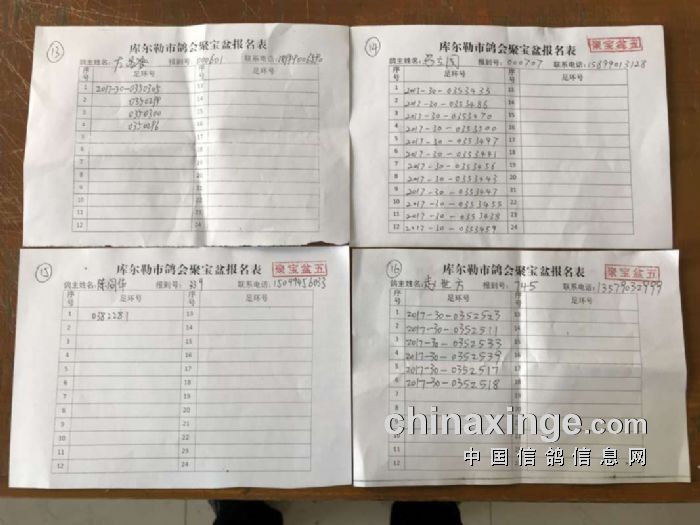 13
库尔勒市鸽会聚宝盆报名表
鸽主姓名: 报到号: 000601 联系电话:
序号 足环号 序号 足环号
1 2017-30-0350305 13
2 0350298 14
3 0350300 15
4 0350296 16
5 17
6 18
7 19
8 20
9 21
10 22
11 23
12 24
14
库尔勒市鸽会聚宝盆报名表
聚宝盆五
鸽主姓名: 报到号: 000707 联系电话: 15899013128
序号 足环号 序号 足环号
1 2017-30-0353435 13
2 2017-30-0353486 14
3 2017-30-0353470 15
4 2017-30-0353500 16
5 2017-30-0353497 17
6 2017-30-0353441 18
7 2017-30-0353456 19
8 2017-30-0353443 20
9 2017-30-0353447 21
10 2017-30-0353455 22
11 2017-30-0353438 23
12 2017-30-0353459 24
15
库尔勒市鸽会聚宝盆报名表
聚宝盆五
鸽主姓名: 陈阁华 报到号: 339 联系电话: 15099456033
序号 足环号 序号 足环号
1 0382281 13
2 14
3 15
4 16
5 17
6 18
7 19
8 20
9 21
10 22
11 23
12 24
16
库尔勒市鸽会聚宝盆报名表
聚宝盆五
鸽主姓名: 赵世方 报到号: 745 联系电话: 13579032999
序号 足环号 序号 足环号
1 2017-30-0352523 13
2 2017-30-0352511 14
3 2017-30-0352533 15
4 2017-30-0352539 16
5 2017-30-0352517 17
6 2017-30-0352518 18
7 19
8
9
10
11
12 24
chinaxinge.com
中国信鸽信息网